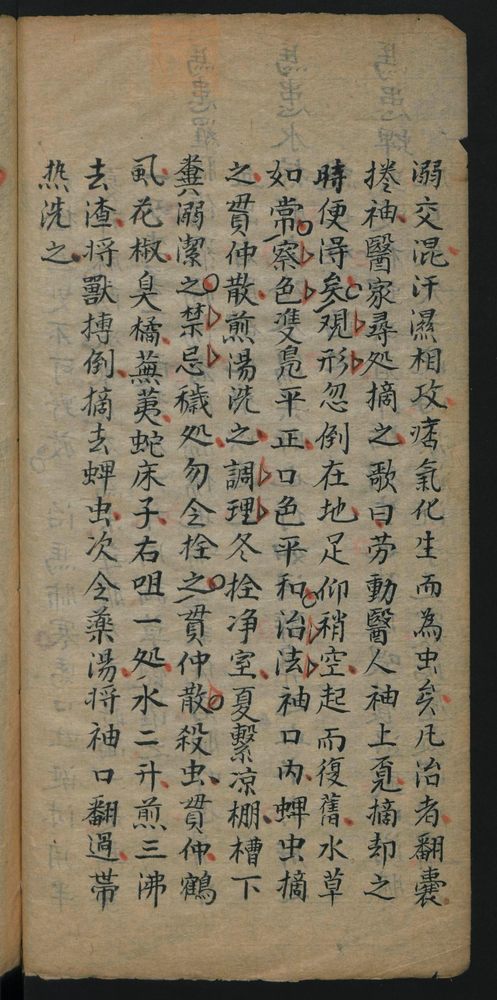 溺交混汗濕相攻瘀氣化生而為虫矣凡治者翻囊
捲袖醫家尋处摘之歌曰劳動醫人袖上覔摘却之
時便得矣观形忽倒在地足仰稍空起而復舊水草
如常察色雙鳬平正口色平和治法袖口内蜱虫摘
之貫仲散煎湯洗之調理冬拴净室夏繫凉棚槽下
糞溺潔之禁忌穢处勿令拴之貫仲散殺虫貫仲鶴
虱花椒臭橘蕪荑蛇床子右咀一处水二升煎三沸
去渣将獸摶倒摘去蜱虫次令藥湯将袖口翻過帶
热洗之